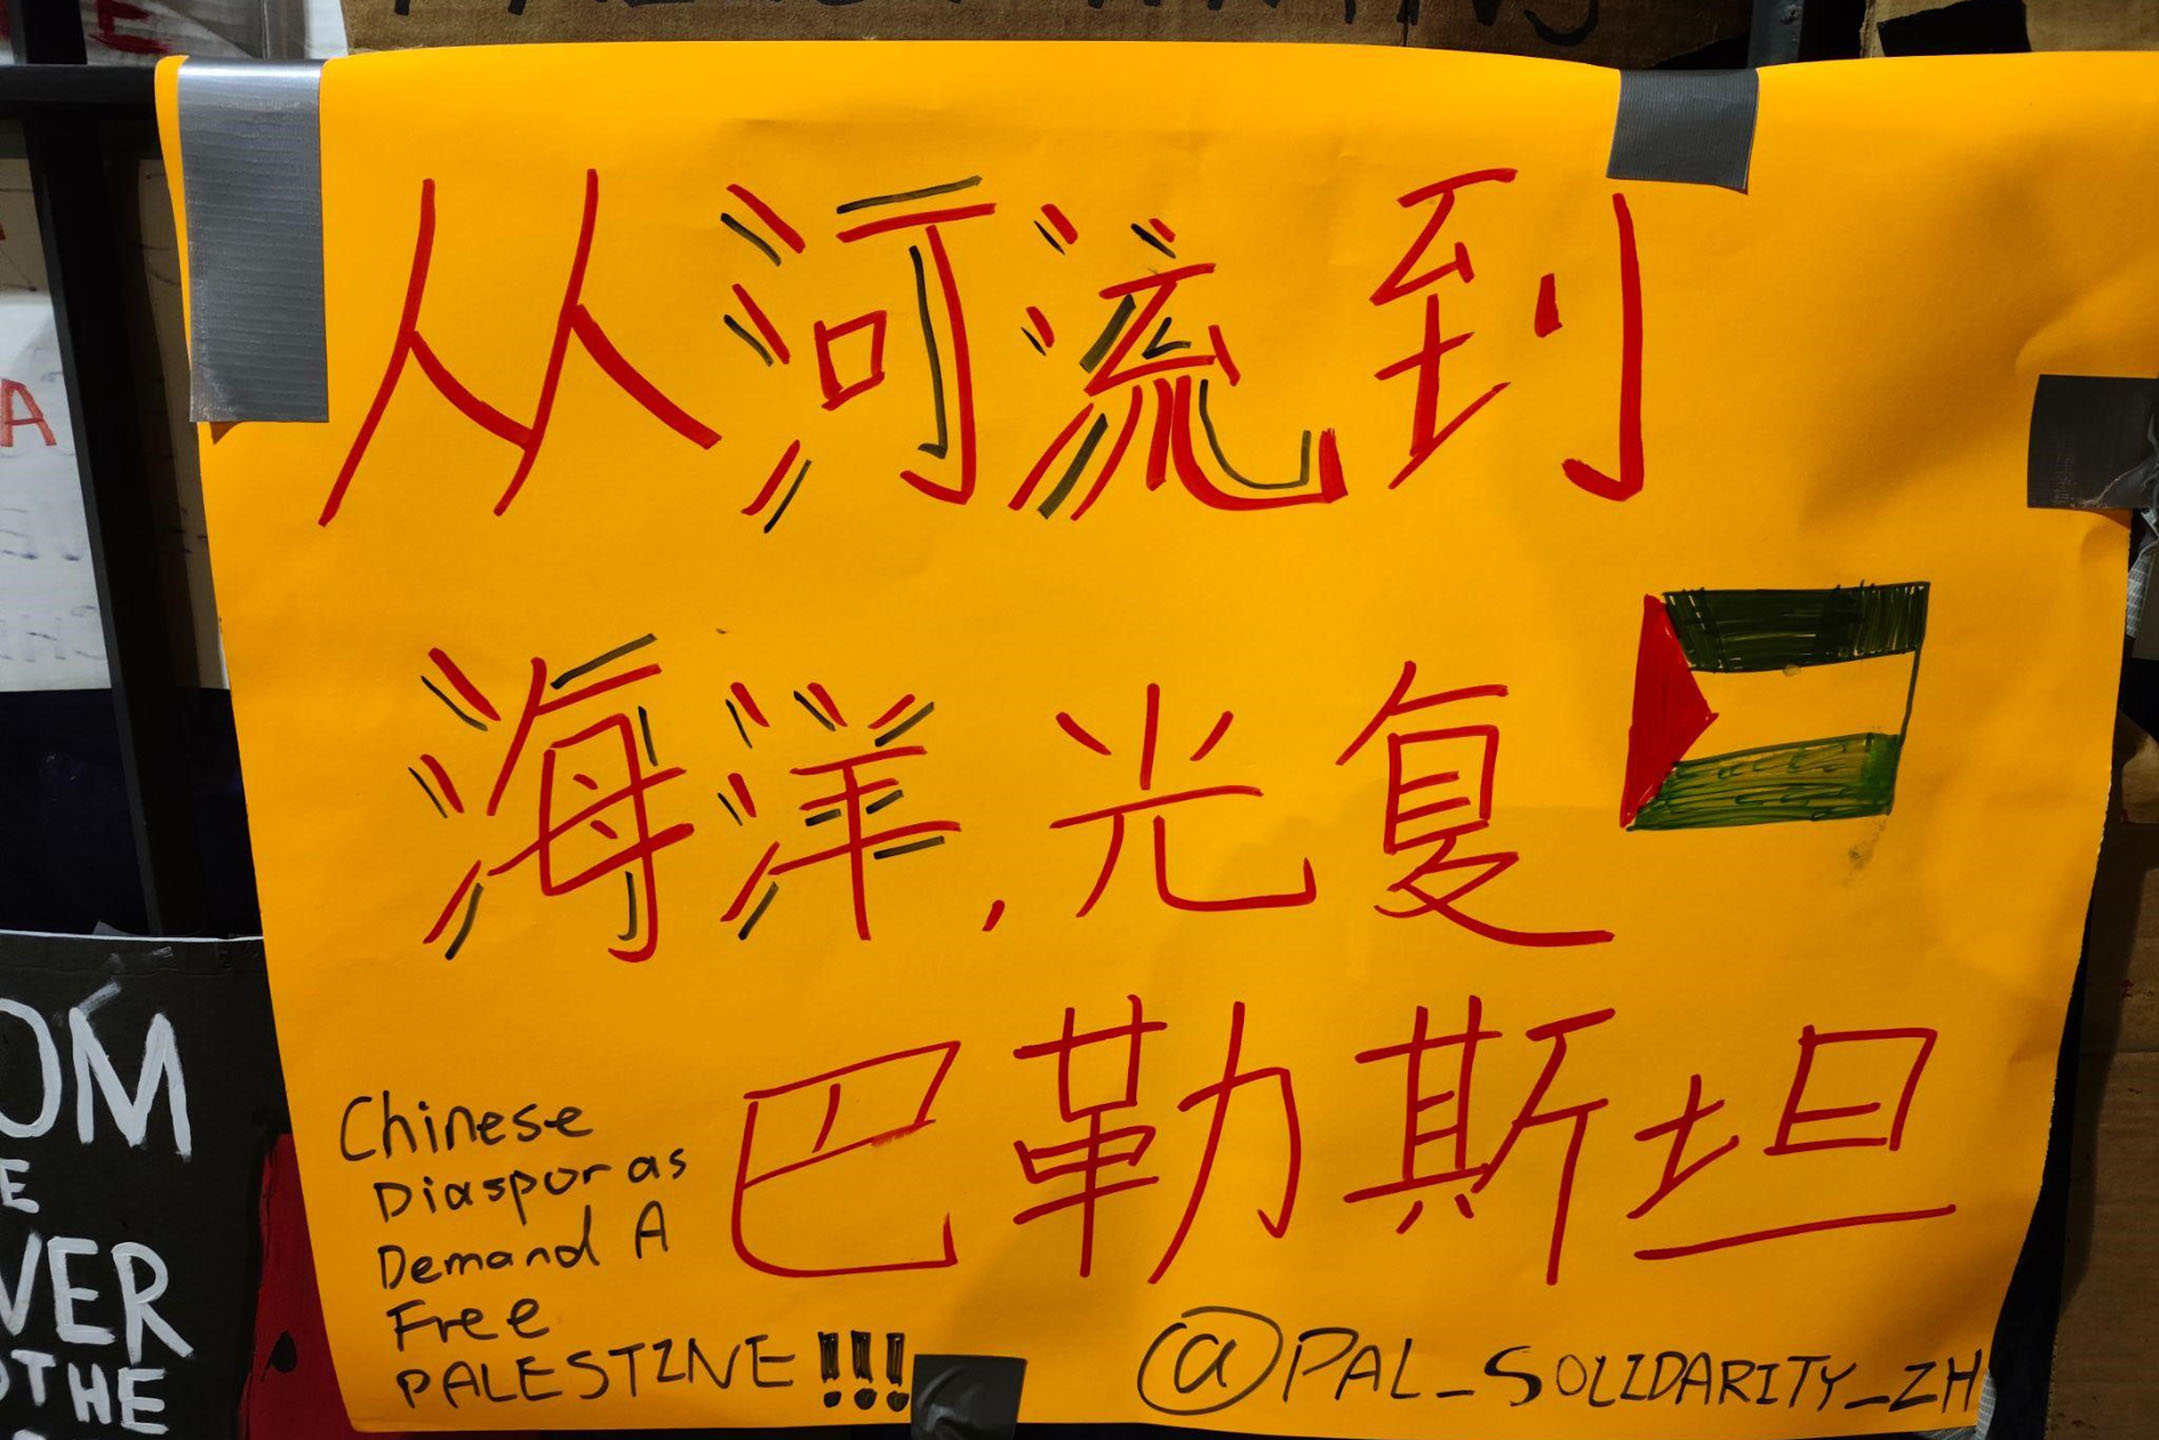 从河流到
海洋，光复
巴勒斯坦
Chinese
Diasporas
Demand A
Free
PALESTINE !!!
@PAL_SOLIDARITY_ZH